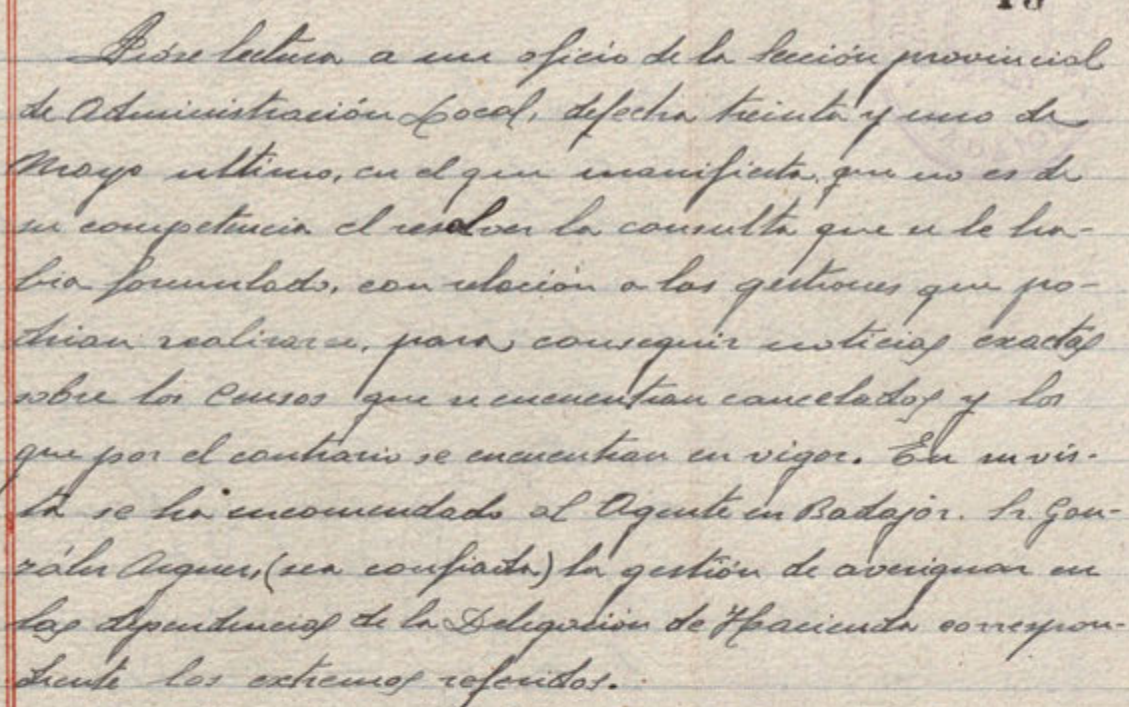 Dióse lectura a un oficio de la Sección provincial
de Administración Local, de fecha treinta y uno de
Mayo ultimo, en el que manifiesta, que no es de
su competencia el resolver la consulta que se le ha-
bia formulado, con relación a las gestiones que po-
drian realizarse, para conseguir noticias exactas
sobre los Censos que se encuentran cancelados y los
que por el contrario se encuentran en vigor. En su vis-
ta se ha encomendado al Agente en Badajoz. Sr. Gon-
zález (sea confiada) la gestión de averiguar en
las dependencias de la Delegación de Hacienda correspon-
diente los extremos referidos.